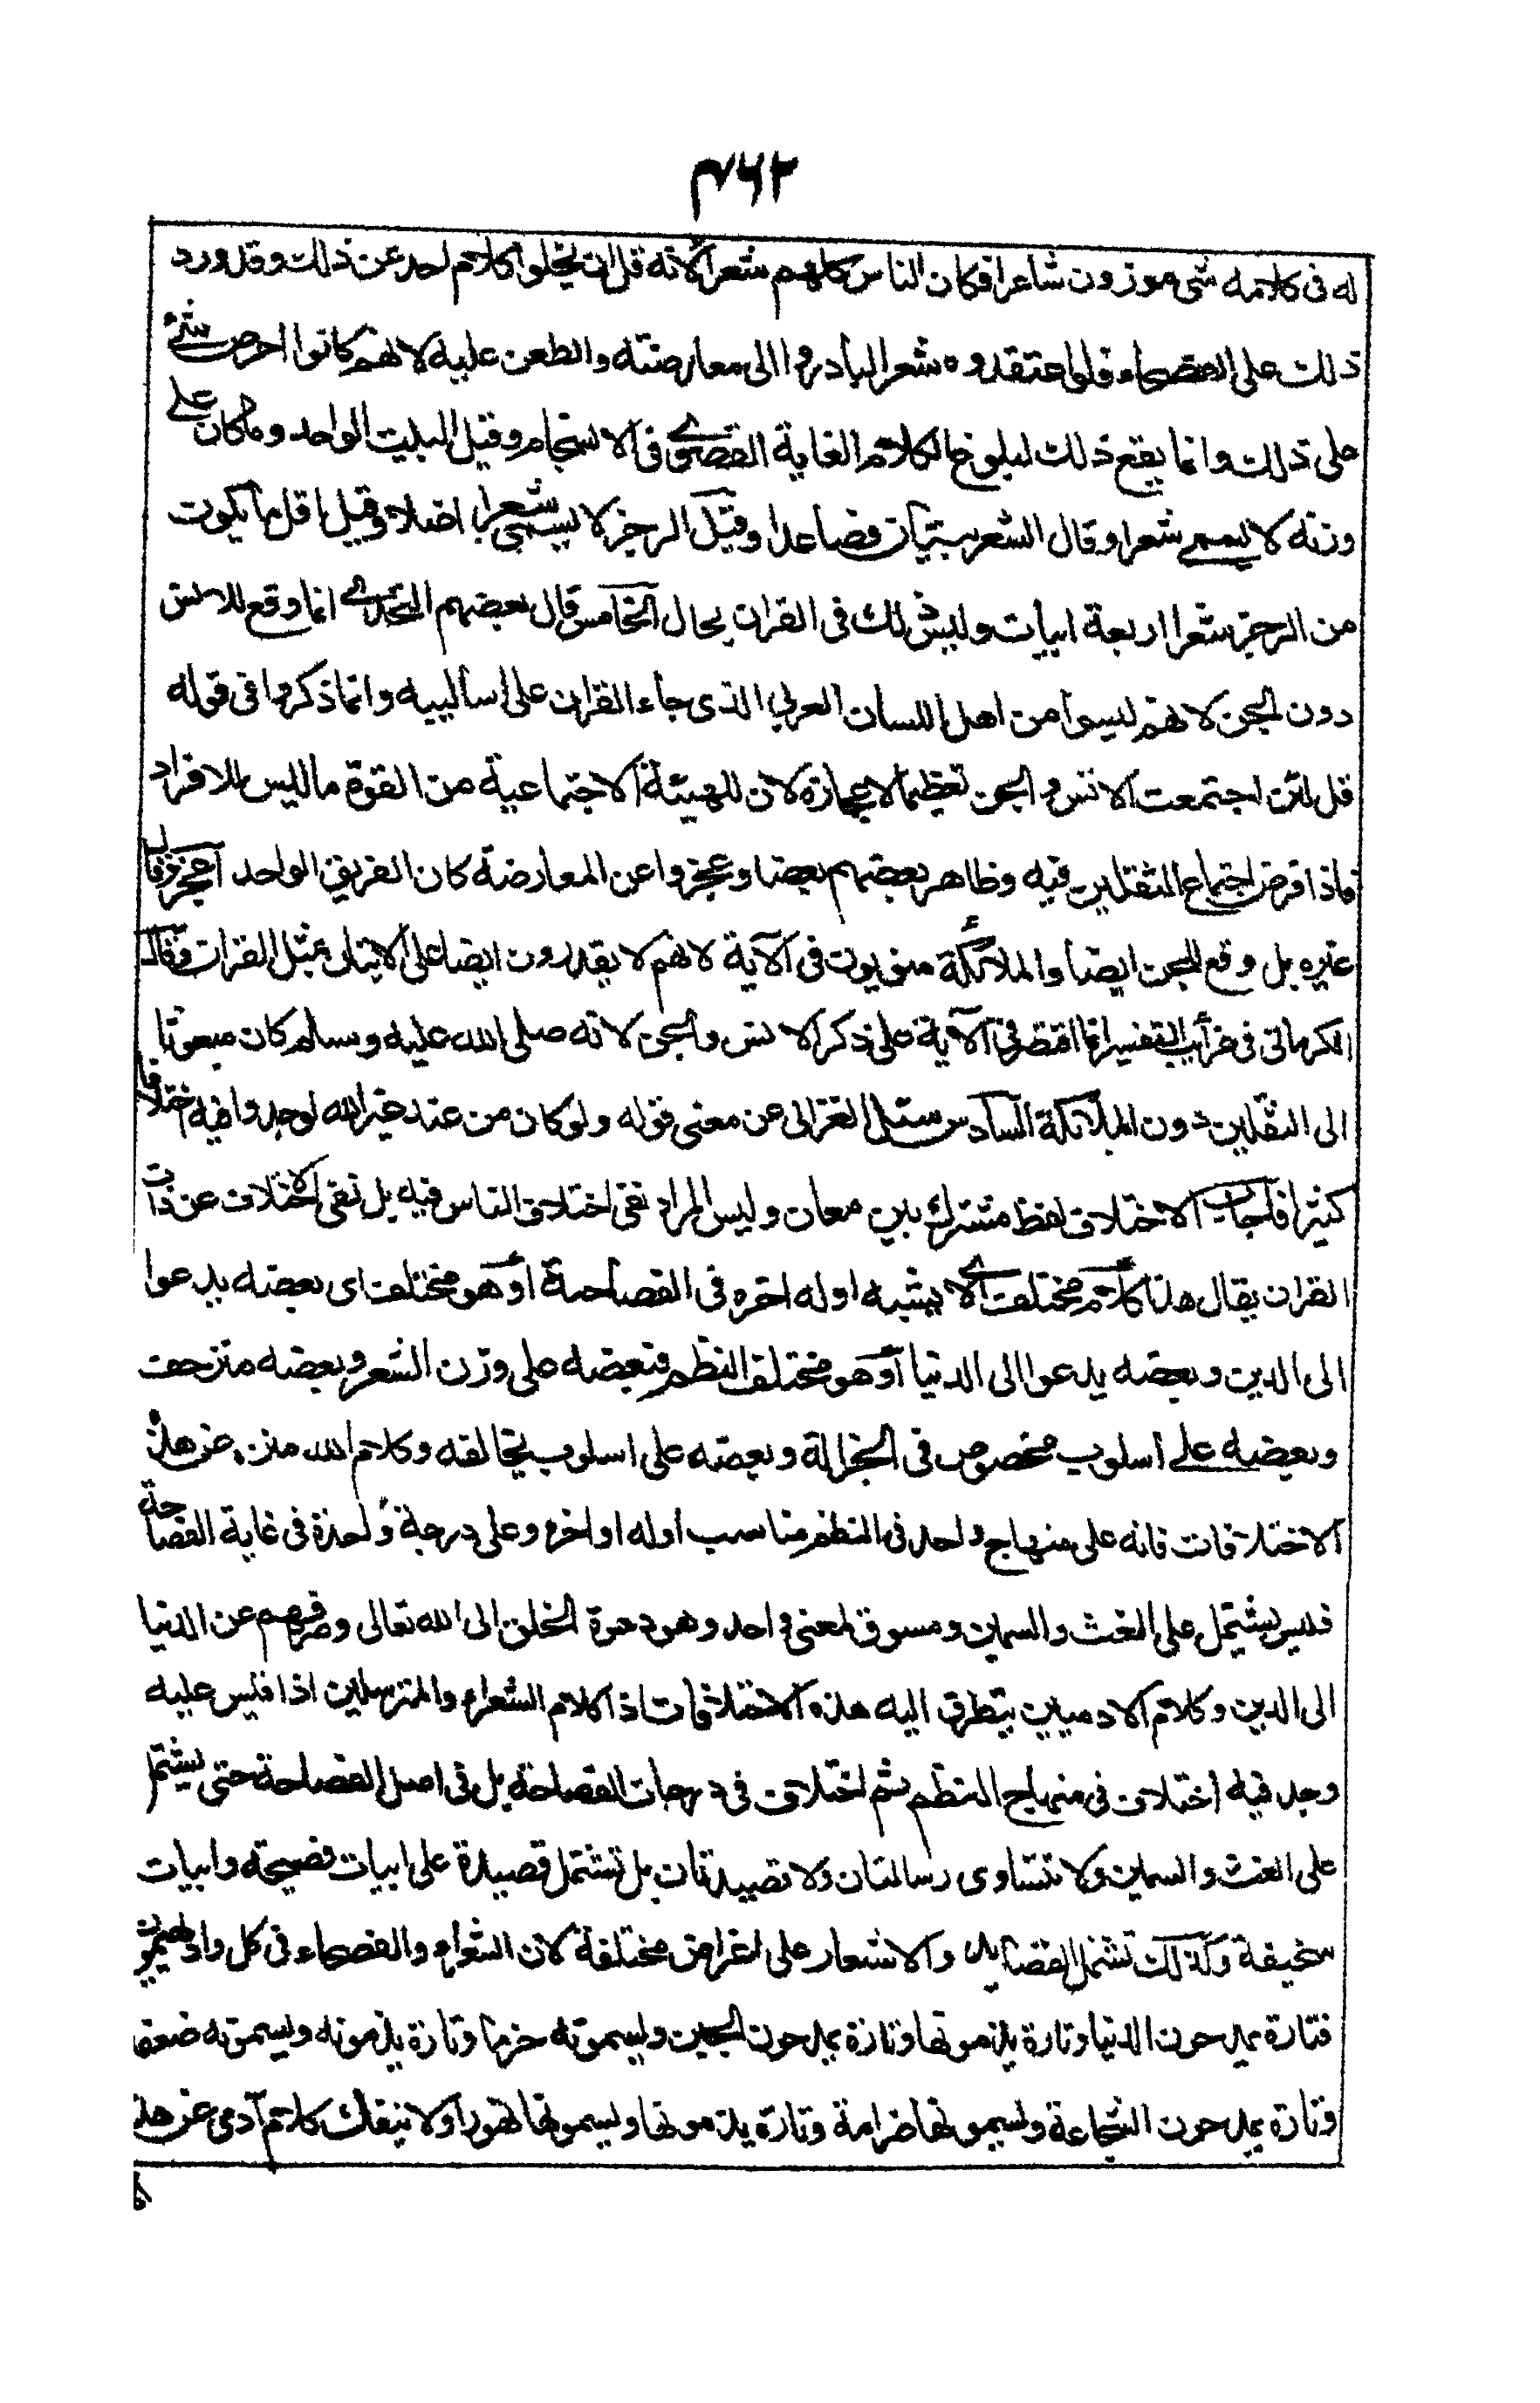 ٧٦٢
له فى كلامه شى موزون شاعرا فكان الناس كلهم شعرا لانه قل ان يخلوا كلام احد عن ذلك وقد ورد
ذلك على الفصحاء فلو اعتقدوه شعرا لبادروا الى معارضته والطعن عليه لانهم كانوا احرص شئ
على ذلك وانما يقع ذلك لبلوغ الكلام الغاية القصوى فى الانسجام وقيل البيت الواحد وما كان على
وزنه لا يسمى شعرا وقال الشعر بيتان فصاعدا وقيل الرجز لا يسمى شعرا اصلا وقيل اقل ما يكون
من الرجز شعرا اربعة ابيات وليس ذلك فى القران بحال الخامس قال بعضهم التحدى انما وقع للانس
دون الجن لانهم ليسوا من اهل اللسان العربى الذى جاء القران على اساليبه وانما ذكروا فى قوله
قل لئن اجتمعت الانس والجن تعظيما لاعجازه لان للهيئة الاجتماعية من القوة ما ليس للافراد
فاذا فرض اجتماع الثقلين فيه وظاهر بعضهم بعضا وعجزوا عن المعارضة كان الفريق الواحد اعجز وقال
غيره بل وقع للجن ايضا والملائكة منويون فى الآية لانهم لا يقدرون ايضا على الاتيان بمثل القران وقال
الكرمانى فى غرائب التفسير انما اقتصر فى الآية على ذكر الانس والجن لانه صلى الله عليه وسلم كان مبعوثا
الى الثقلين دون الملائكة السادس سئل الغزالى عن معنى قوله ولو كان من عند غير الله لوجدوا فيه اختلافا
كثيرا فاجاب الاختلاف لفظ مشترك بين معان وليس المراد نفى اختلاف الناس فيه بل نفى الاختلاف عن ذات
القران يقال هذا كلام مختلف اى لا يشبه اوله اخره فى الفصاحة او هو مختلف اى بعضه يدعوا
الى الدين وبعضه يدعوا الى الدنيا او هو مختلف النظم فبعضه على وزن الشعر وبعضه منزحف
وبعضه على اسلوب مخصوص فى الجزالة وبعضه على اسلوب يخالفه وكلام الله منزه عن هذه
الاختلافات فانه على منهاج واحد فى النظم مناسب اوله اواخره وعلى درجة واحدة فى غاية الفصاحة
فليس يشتمل على الغث والسمين ومسوق لمعنى واحد وهو دعوة الخلق الى الله تعالى وصرفهم عن الدنيا
الى الدين وكلام الادميين يتطرق اليه هذه الاختلافات اذ اكلام الشعراء والمترسلين اذا قيس عليه
وجد فيه اختلاف فى منهاج النظم ثم اختلاف فى درجات الفصاحة بل فى اصل الفصاحة حتى يشتمل
على الغث والسمين ولا تتساوى رسالتان ولا قصيدتان بل تشتمل قصيدة على ابيات فصيحة وابيات
سخيفة وكذلك تشتمل القصايد والاشعار على اغراض مختلفة لان الشعراء والفصحاء فى كل واد يهيمون
فتارة يمدحون الدنيا وتارة يذمونها وتارة يمدحون الجبن ويسمونه حزما وتارة يذمونه ويسمونه ضعفا
وتارة يمدحون الشجاعة ويسمونها صرامة وتارة يذمونها ويسمونها تهورا ولا ينفك كلام آدمى عن هذه